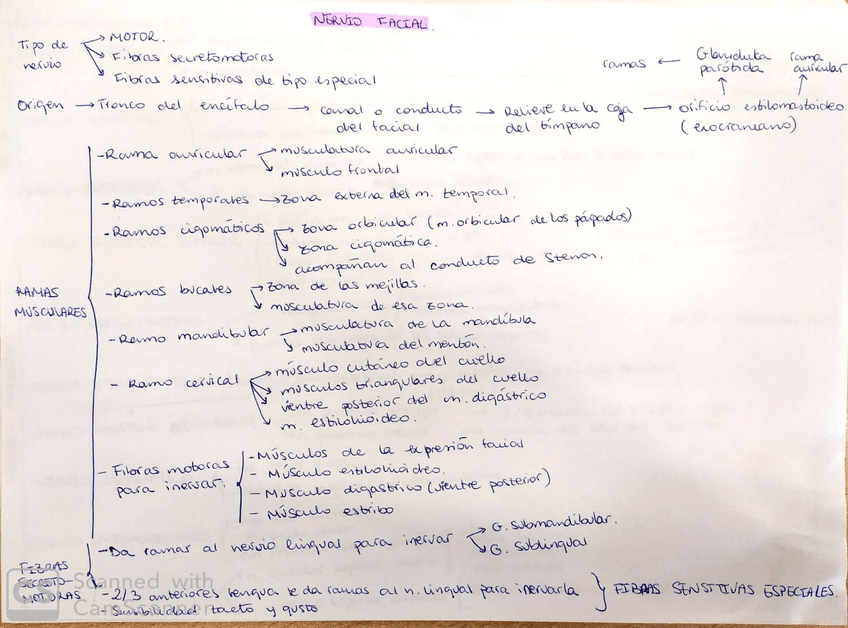 NERVIO FACIAL.
Tipo de nervio → MOTOR.
→ Fibras secretomotoras
→ Fibras sensitivas de tipo especial
ramas ← Glandula parótida rama auricular
Origen → Tronco del encéfalo → canal o conducto del facial → Relieve en la caja del tímpano → orificio estilomastoideo (exocraneano)
RAMAS MUSCULARES
- Rama auricular → musculatura auricular
→ musculo frontal
- Ramos temporales → Zona externa del m. temporal.
- Ramos cigomáticos → Zona orbicular (m. orbicular de los párpados)
→ Zona cigomática.
→ acompañan al conducto de Stenon.
- Ramos bucales → Zona de las mejillas.
→ musculatura de esa zona.
- Ramo mandibular → musculatura de la mandíbula
→ musculatura del mentón.
- Ramo cervical → músculo cutáneo del cuello
→ músculos triangulares del cuello
→ vientre posterior del m. digástrico
→ m. estilohióideo.
- Fibras motoras para inervar:
- Músculos de la expresión facial
- Músculo estilohióideo.
- Musculo digastrico (vientre posterior)
- Músculo estribo
FIBRAS SECRETO-MOTORAS
- Da ramas al nervio lingual para inervar → G. submandibular.
→ G. sublingual
- 2/3 anteriores lengua le da ramas al n. lingual para inervarla } FIBRAS SENSITIVAS ESPECIALES.
- Sensibilidad tacto y gusto
CS Scanned with CamScanner